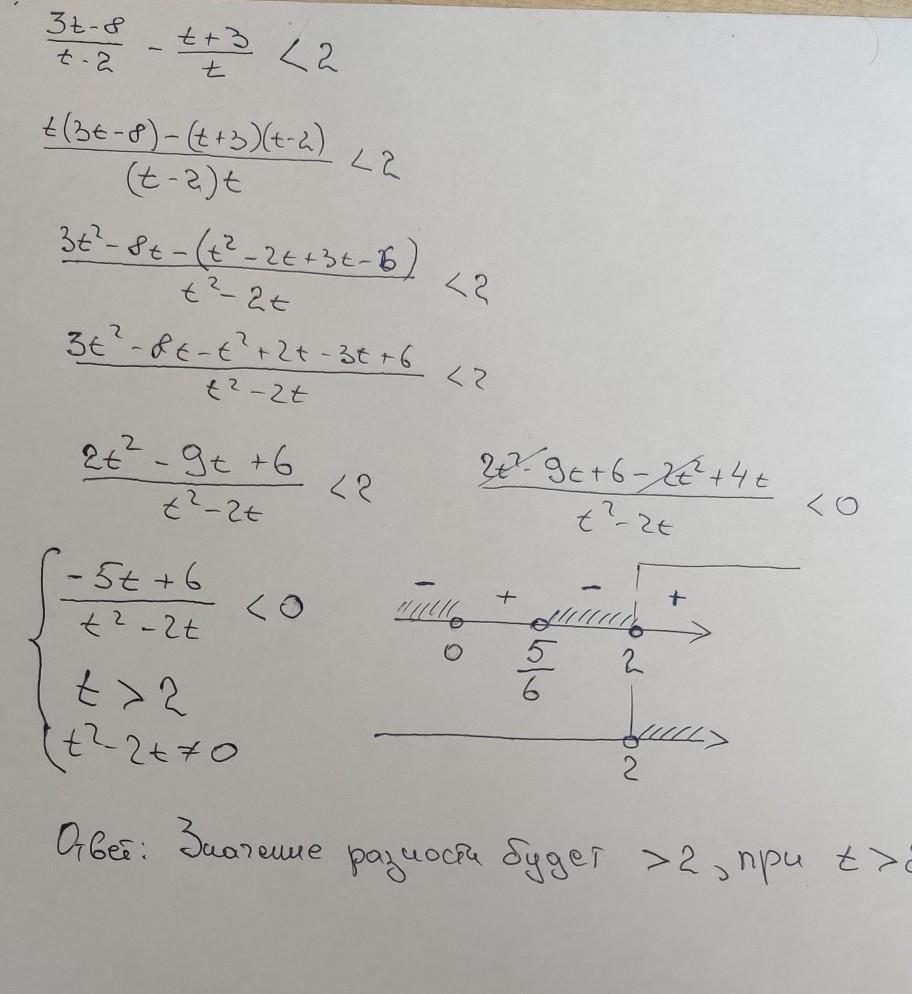 (3t-8)/(t-2) - (t+3)/t < 2
(t(3t-8)-(t+3)(t-2))/((t-2)t) < 2
(3t²-8t-(t²-2t+3t-6))/(t²-2t) < 2
(3t²-8t-t²+2t-3t+6)/(t²-2t) < 2
(2t²-9t+6)/(t²-2t) < 2
(2t²-9t+6-2t²+4t)/(t²-2t) < 0
(-5t+6)/(t²-2t) < 0
t > 2
t²-2t≠0
- + - +
0 5/6 2
2
Ответ: Значение разности будет >2, при t>